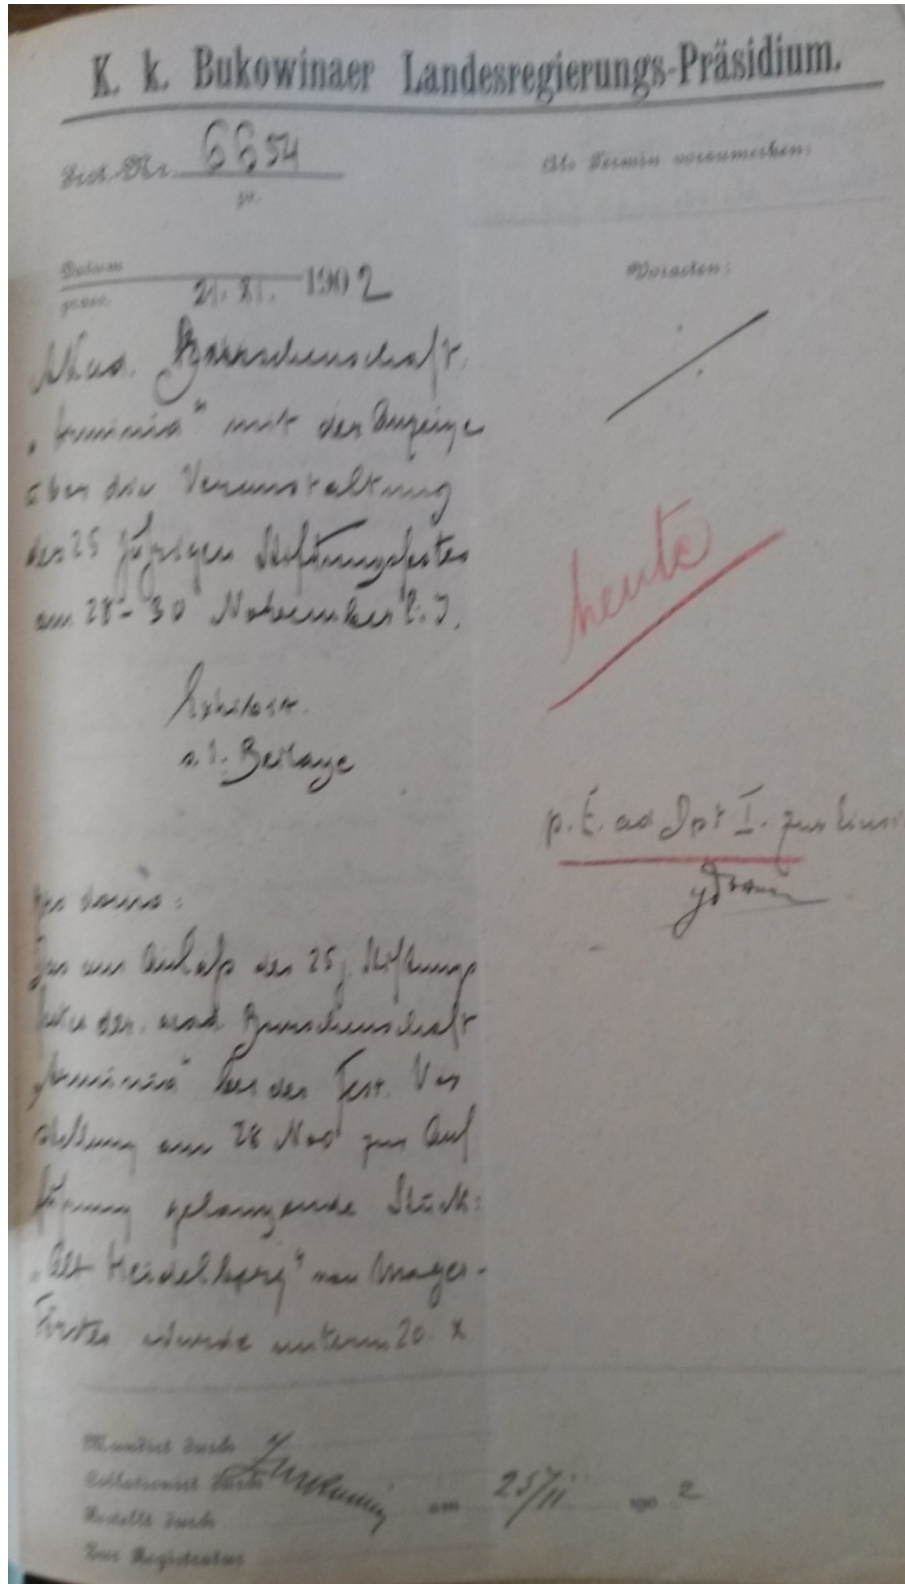 K. k. Bukowinaer Landesregierungs-Präsidium.
Exh.-Nr. 6654
pr.
Als Termin vorzumerken:
Datum
praes. 21. XI. 1902
Voracten:
Akad. Burschenschaft
„Arminia" mit der Anzeige
über die Veranstaltung
des 25 jährigen Stiftungsfestes
am 28-30 November l. J.
heute
s. 1. Beilage
p. E. ad Dpt I. zur
Das aus Anlaß des 25 j. Stiftungs
festes der akad Burschenschaft
„Arminia" bei der Fest. Vor
stellung am 28 Nov zur Auf
führung gelangende Stück:
„Alt Heidelberg" von Mayer-
Förster wurde unterm 20. X
Mundirt durch
Collationirt durch
am 25/11 190 2
Bestellt durch
Zur Registratur